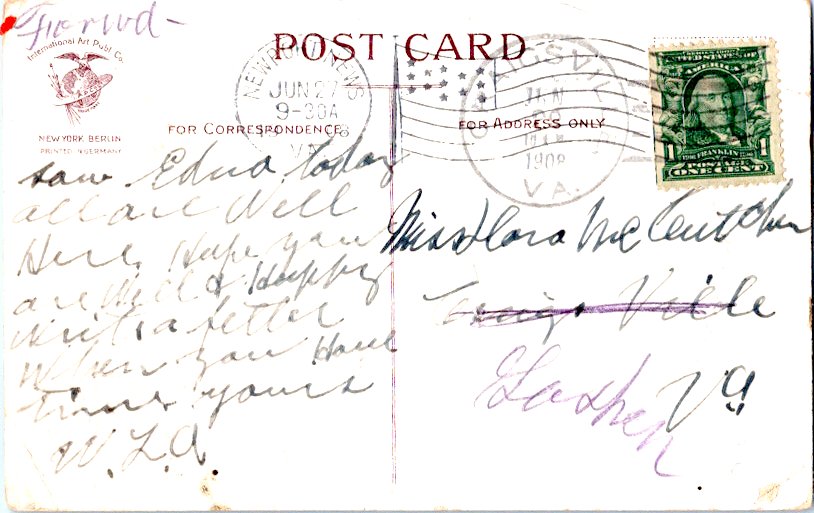 Forwd-
International Art Publ Co.
NEW YORK BERLIN
PRINTED IN GERMANY
POST CARD
FOR CORRESPONDENCE
FOR ADDRESS ONLY
NEWPORT NEWS
JUN 27
9-30A
VA.
JUN
1908
VA.
SERIES 1902
UNITED STATES OF
AMERICA
FRANKLIN
1 1
POSTAGE
ONE CENT
saw Edna today
all are Well
Here, Hope you
are Well & Happy
Writ a letter
When you Have
time yours
W. L. A.
Miss Flora McCutchen
Craigs Ville
Goshen Va